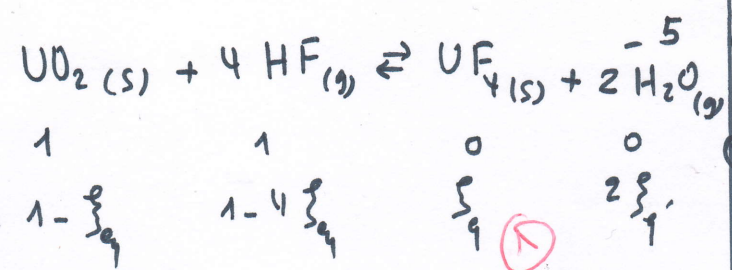 - 5
UO₂ (s) + 4 HF (g) ⇄ UF₄ (s) + 2 H₂O (g)
1 1 0 0
1 - ξéq 1 - 4 ξéq ξéq 2 ξéq